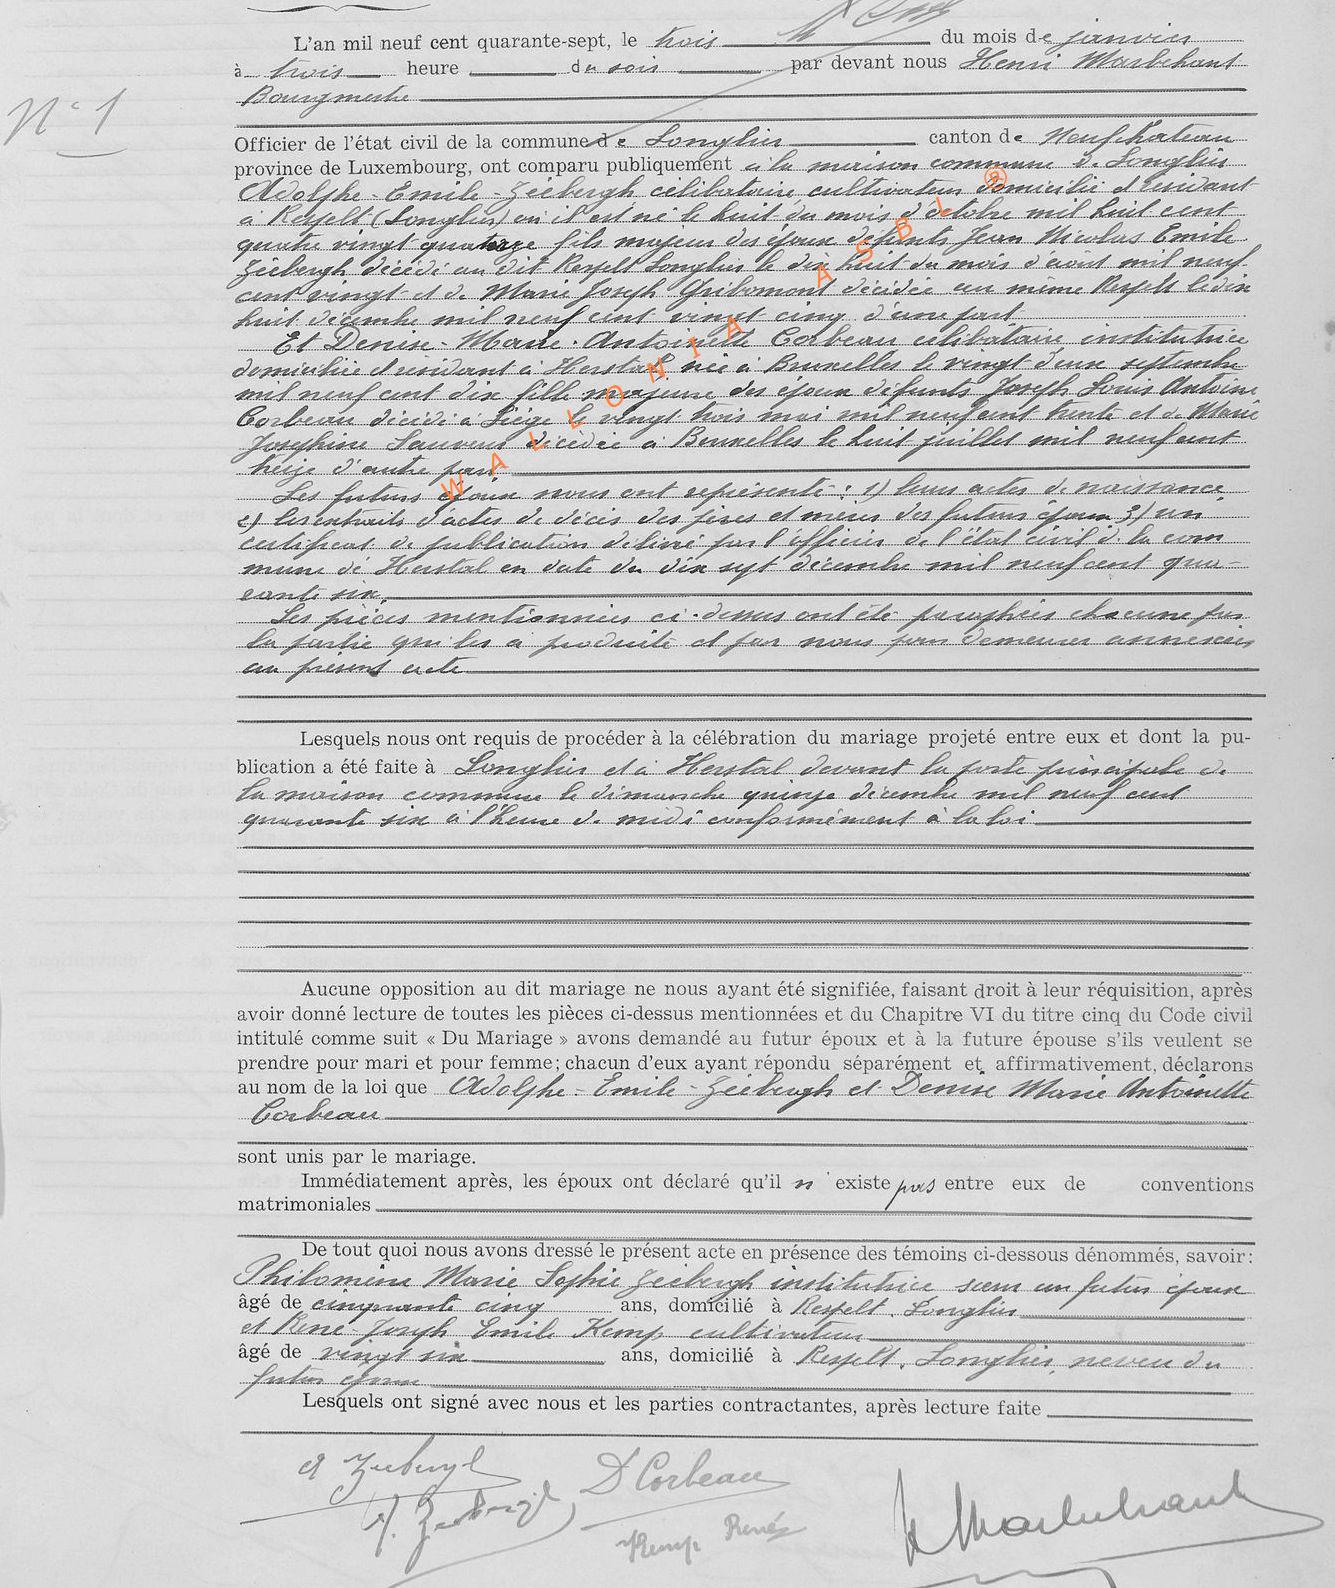 L'an mil neuf cent quarante-sept, le trois du mois de janvier
à trois heure du soir par devant nous Henri Marbehant
Bourgmestre
N° 1
Officier de l'état civil de la commune de Longlier canton de Neufchâteau
province de Luxembourg, ont comparu publiquement à la maison commune de Longlier
Adolphe-Emile-Zéebergh célibataire, cultivateur domicilié et résidant
à Respelt (Longlier) où il est né le huit du mois d'octobre mil huit cent
quatre vingt quatorze fils majeur des époux défunts Jean Nicolas Emile
Zéebergh décédé au dit Respelt Longlier le dix huit du mois d'août mil neuf
cent vingt et de Marie Joseph Gribomont décédée au même Respelt le dix
huit décembre mil neuf cent vingt cinq d'une part
Et Denise-Marie-Antoinette Corbeau célibataire institutrice
domiciliée et résidant à Herstal, née à Bruxelles le vingt deux septembre
mil neuf cent dix fille majeure des époux défunts Joseph Louis Antoine
Corbeau décédé à Liège le vingt trois mai mil neuf cent trente et de Marie
Joséphine Sauveur décédée à Bruxelles le huit juillet mil neuf cent
treize d'autre part
Les futurs époux nous ont représenté : 1) leurs actes de naissance
2) les extraits d'actes de décès des pères et mères des futurs époux 3) un
certificat de publication délivré par l'officier de l'état civil de la com
mune de Herstal en date du dix sept décembre mil neuf cent qua-
rante six.
Les pièces mentionnées ci-dessus ont été paraphées chacune par
la partie qui les a produite et par nous pour demeurer annexées
au présent acte
Lesquels nous ont requis de procéder à la célébration du mariage projeté entre eux et dont la pu-
blication a été faite à Longlier et à Herstal devant la porte principale de
la maison commune le dimanche quinze décembre mil neuf cent
quarante six à l'heure de midi conformément à la loi
Aucune opposition au dit mariage ne nous ayant été signifiée, faisant droit à leur réquisition, après
avoir donné lecture de toutes les pièces ci-dessus mentionnées et du Chapitre VI du titre cinq du Code civil
intitulé comme suit « Du Mariage » avons demandé au futur époux et à la future épouse s'ils veulent se
prendre pour mari et pour femme; chacun d'eux ayant répondu séparément et affirmativement, déclarons
au nom de la loi que Adolphe-Emile-Zéebergh et Denise Marie Antoinette
Corbeau
sont unis par le mariage.
Immédiatement après, les époux ont déclaré qu'il n'existe pas entre eux de conventions
matrimoniales
De tout quoi nous avons dressé le présent acte en présence des témoins ci-dessous dénommés, savoir:
Philomène Marie Sophie Zéebergh institutrice sœur au futur époux
âgé de cinquante cinq ans, domicilié à Respelt, Longlier
et René-Joseph Emile Kemp cultivateur
âgé de vingt six ans, domicilié à Respelt, Longlier, neveu du
futur époux
Lesquels ont signé avec nous et les parties contractantes, après lecture faite
A Zeebergh
D Corbeau
Zeebergh
Kemp René
H Marbehant
WALLONIA ASBL ®